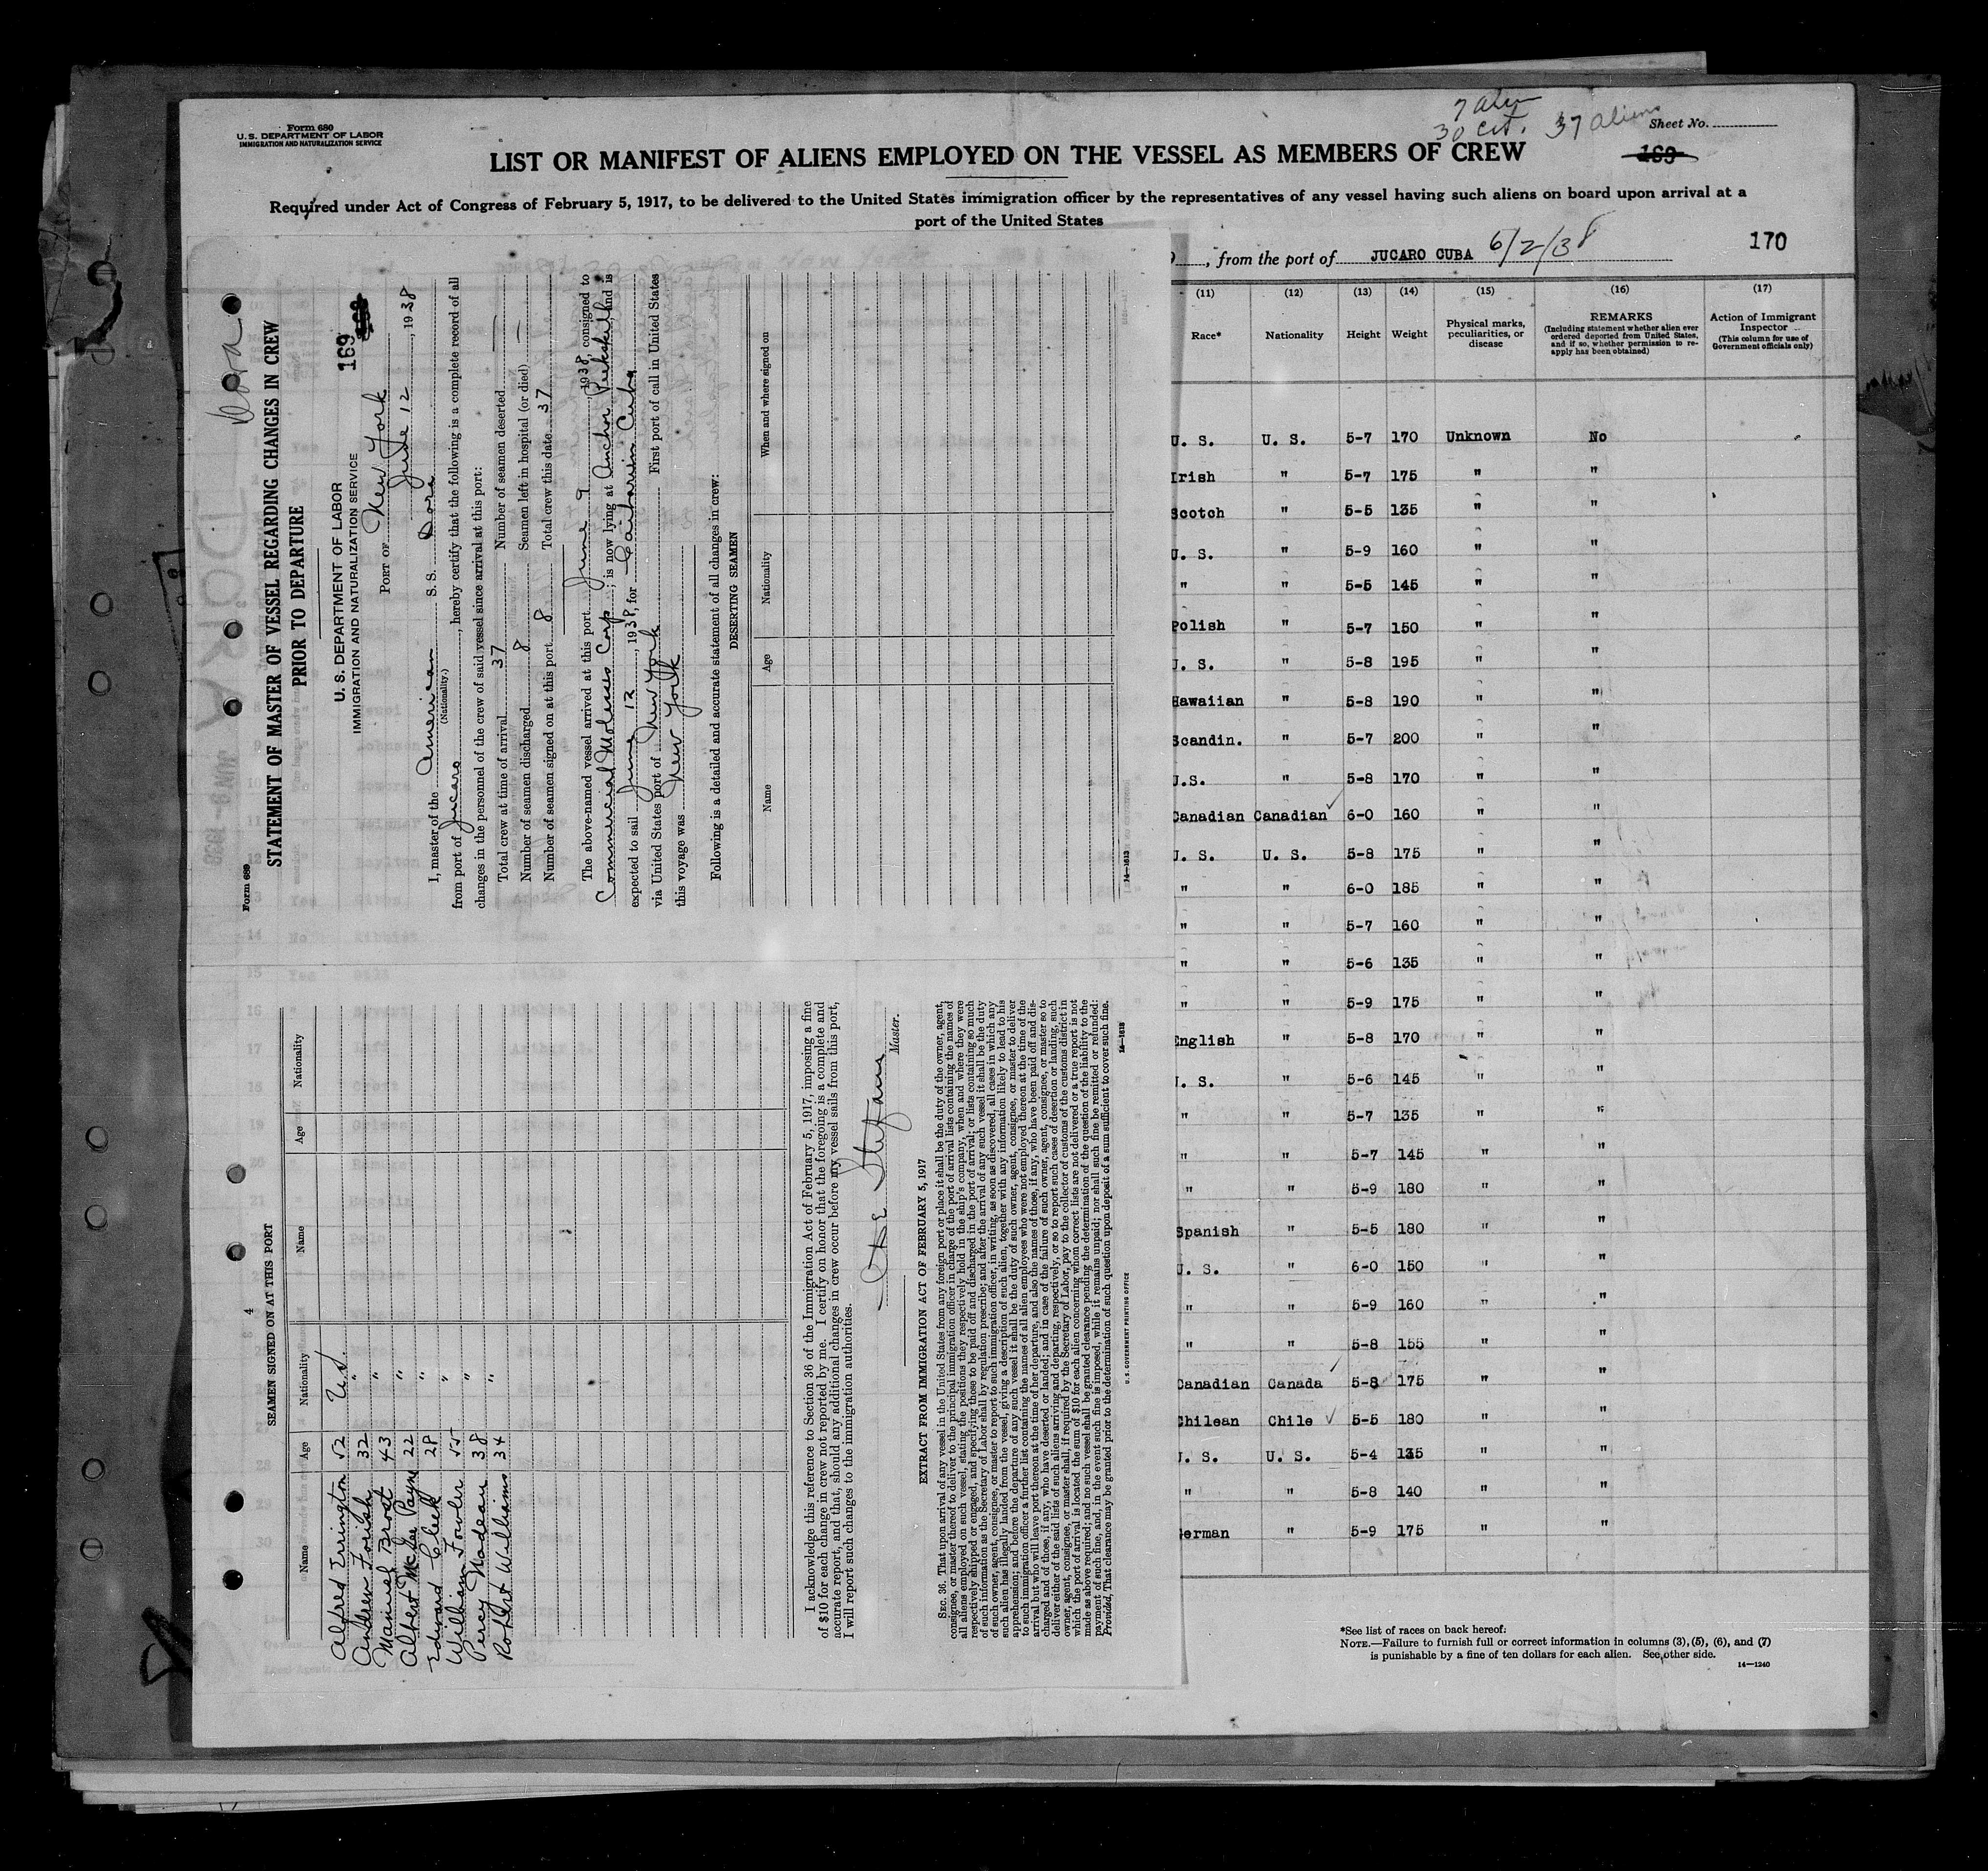 Form 680
U. S. DEPARTMENT OF LABOR
IMMIGRATION AND NATURALIZATION SERVICE
7 alien
30 cit. 37 aliens
Sheet No.
169
LIST OR MANIFEST OF ALIENS EMPLOYED ON THE VESSEL AS MEMBERS OF CREW
Required under Act of Congress of February 5, 1917, to be delivered to the United States immigration officer by the representatives of any vessel having such aliens on board upon arrival at a
port of the United States
, from the port of JUCARO CUBA 6/2/38
170
(11) (12) (13) (14) (15) (16) (17)
Race* Nationality Height Weight Physical marks, peculiarities, or disease REMARKS (Including statement whether alien ever ordered deported from United States, and if so, whether permission to re-apply has been obtained) Action of Immigrant Inspector (This column for use of Government officials only)
U. S. U. S. 5-7 170 Unknown No
Irish " 5-7 175 " "
Scotch " 5-5 135 " "
U. S. " 5-9 160 " "
" " 5-5 145 " "
Polish " 5-7 150 " "
U. S. " 5-8 195 " "
Hawaiian " 5-8 190 " "
Scandin. " 5-7 200 " "
U.S. " 5-8 170 " "
Canadian Canadian ✓ 6-0 160 " "
U. S. U. S. 5-8 175 " "
" " 6-0 185 " "
" " 5-7 160 " "
" " 5-6 135 " "
" " 5-9 175 " "
English " 5-8 170 " "
U. S. " 5-6 145 " "
" " 5-7 135 " "
" " 5-7 145 " "
" " 5-9 180 " "
Spanish " 5-5 180 " "
U. S. " 6-0 150 " "
" " 5-9 160 " "
" " 5-8 155 " "
Canadian Canada ✓ 5-8 175 " "
Chilean Chile ✓ 5-5 180 " "
U. S. U. S. 5-4 135 " "
" " 5-8 140 " "
German " 5-9 175 " "
*See list of races on back hereof.
NOTE.—Failure to furnish full or correct information in columns (3), (5), (6), and (7)
is punishable by a fine of ten dollars for each alien. See other side.
14—1240
Form 689
Dora
STATEMENT OF MASTER OF VESSEL REGARDING CHANGES IN CREW
PRIOR TO DEPARTURE
U. S. DEPARTMENT OF LABOR
IMMIGRATION AND NATURALIZATION SERVICE
169
PORT OF New York
June 12, 1938
I, master of the American S. S. Dora
(Nationality.)
from port of Jucaro, hereby certify that the following is a complete record of all
changes in the personnel of the crew of said vessel since arrival at this port:
Total crew at time of arrival 37 Number of seamen deserted —
Number of seamen discharged 8 Seamen left in hospital (or died) —
Number of seamen signed on at this port 8 Total crew this date 37
The above-named vessel arrived at this port June 9, 1938, consigned to
Commercial Molasses Corp; is now lying at Anchor Peekskill and is
expected to sail June 12, 1938, for Caibarien Cuba
via United States port of New York First port of call in United States
this voyage was New York
Following is a detailed and accurate statement of all changes in crew:
DESERTING SEAMEN
Name Age Nationality When and where signed on
14—1613
4
SEAMEN SIGNED ON AT THIS PORT
Name Age Nationality Name Age Nationality
Alfred Errington 52 U.S.
Andrew Forish 32 "
Manuel Broot 43 "
Albert McGee Payne 22 "
Edward Cleek 28 "
William Fowler 55 "
Percy Nadeau 38 "
Robert Williams 34 "
I acknowledge this reference to Section 36 of the Immigration Act of February 5, 1917, imposing a fine
of $10 for each change in crew not reported by me. I certify on honor that the foregoing is a complete and
accurate report, and that, should any additional changes in crew occur before my vessel sails from this port,
I will report such changes to the immigration authorities.
Master.
EXTRACT FROM IMMIGRATION ACT OF FEBRUARY 5, 1917
SEC. 36. That upon arrival of any vessel in the United States from any foreign port or place it shall be the duty of the owner, agent,
consignee, or master thereof to deliver to the principal immigration officer in charge of the port of arrival lists containing the names of
all aliens employed on such vessel, stating the positions they respectively hold in the ship's company, when and where they were
respectively shipped or engaged, and specifying those to be paid off and discharged in the port of arrival; or lists containing so much
of such information as the Secretary of Labor shall by regulation prescribe; and after the arrival of any such vessel it shall be the duty
of such owner, agent, consignee, or master to report to such immigration officer, in writing, as soon as discovered, all cases in which any
such alien has illegally landed from the vessel, giving a description of such alien, together with any information likely to lead to his
apprehension; and before the departure of any such vessel it shall be the duty of such owner, agent, consignee, or master to deliver
to such immigration officer a further list containing the names of all alien employees who were not employed thereon at the time of the
arrival but who will leave port thereon at the time of her departure, and also the names of those, if any, who have been paid off and dis-
charged and of those, if any, who have deserted or landed; and in case of the failure of such owner, agent, consignee, or master so to
deliver either of the said lists of such aliens arriving and departing, respectively, or so to report such cases of desertion or landing, such
owner, agent, consignee, or master shall, if required by the Secretary of Labor, pay to the collector of customs of the customs district in
which the port of arrival is located the sum of $10 for each alien concerning whom correct lists are not delivered or a true report is not
made as above required; and no such vessel shall be granted clearance pending the determination of the question of the liability to the
payment of such fine, and, in the event such fine is imposed, while it remains unpaid; nor shall such fine be remitted or refunded:
Provided, That clearance may be granted prior to the determination of such question upon deposit of a sum sufficient to cover such fine.
U. S. GOVERNMENT PRINTING OFFICE 14—1613